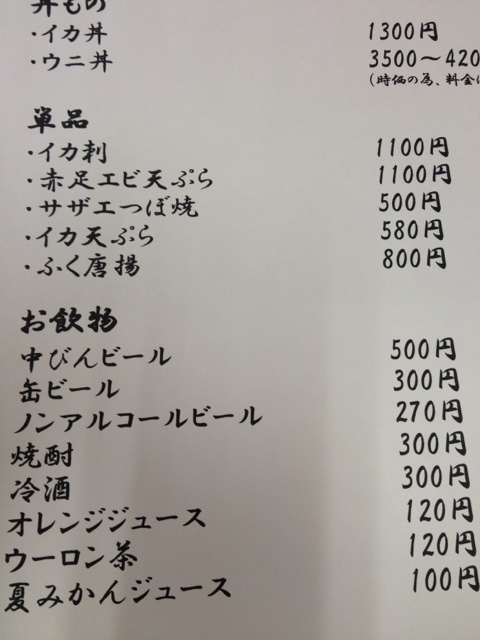 丼もの
・イカ丼 1300円
・ウニ丼 3500〜420
(時価の為、料金は
単品
・イカ刺 1100円
・赤足エビ天ぷら 1100円
・サザエつぼ焼 500円
・イカ天ぷら 580円
・ふく唐揚 800円
お飲物
中びんビール 500円
缶ビール 300円
ノンアルコールビール 270円
焼酎 300円
冷酒 300円
オレンジジュース 120円
ウーロン茶 120円
夏みかんジュース 100円